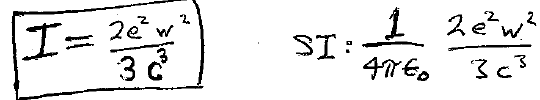 I = 2e²w² / 3c³ SI: 1/4πϵ₀ 2e²w²/3c³